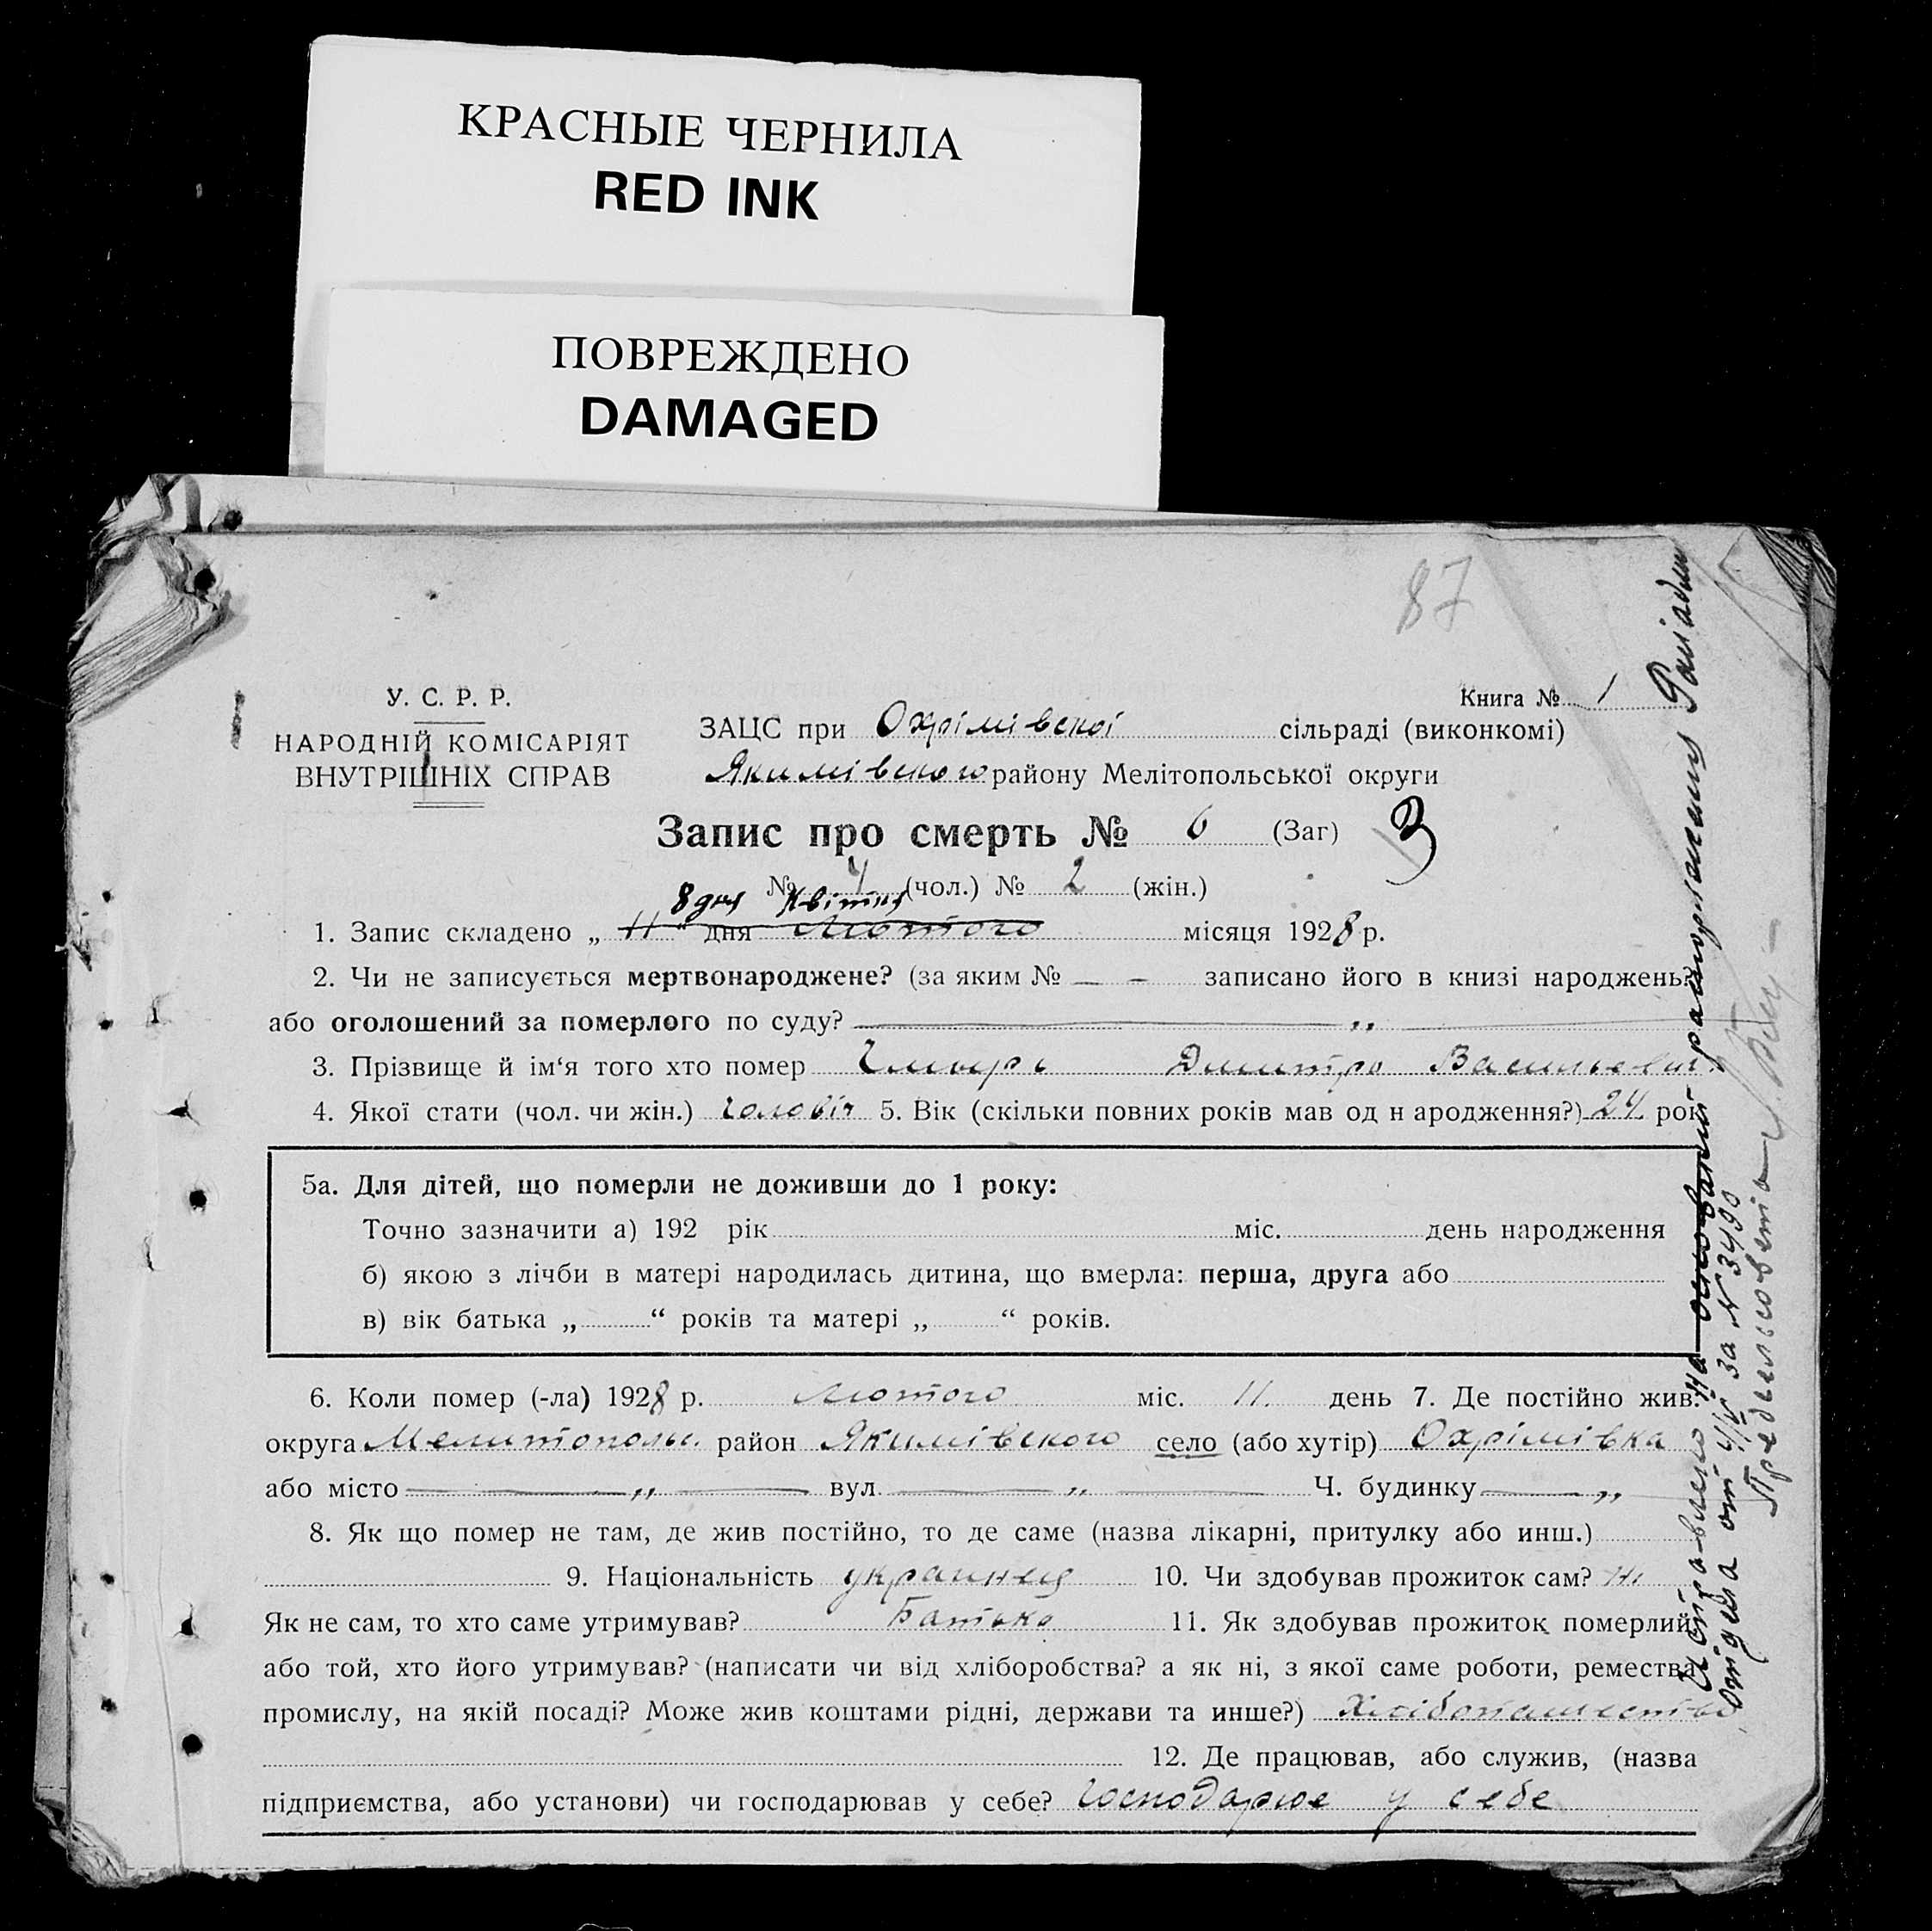 КРАСНЫЕ ЧЕРНИЛА
RED INK
ПОВРЕЖДЕНО
DAMAGED
87
У. С. Р. Р.
НАРОДНІЙ КОМІСАРІЯТ
ВНУТРІШНІХ СПРАВ
Книга № 1
ЗАЦС при Охрімівскої сільраді (виконкомі)
Якимівского району Мелітопольської округи
Запис про смерть № 6 (Заг) 3
№ 4 (чол.) № 2 (жін.)
8 дня Квітня
1. Запис складено „ 11 “ дня Лютого місяця 1928 р.
2. Чи не записується мертвонароджене? (за яким № — - записано його в книзі народжень?
або оголошений за померлого по суду? — „
3. Прізвище й ім‘я того хто помер Чмырь Дмитро Васильевич
4. Якої стати (чол. чи жін.) чоловіч 5. Вік (скільки повних років мав од н ародження?) 24 рок
5а. Для дітей, що померли не доживши до 1 року:
Точно зазначити а) 192 рік міс. день народження
б) якою з лічби в матері народилась дитина, що вмерла: перша, друга або
в) вік батька „ “ років та матері „ “ років.
6. Коли помер (-ла) 1928 р. Лютого міс. 11. день 7. Де постійно жив:
округа Мелитопольс. район Якимівского село (або хутір) Охрімівка
або місто — „ — вул. — „ — Ч. будинку — „
8. Як що помер не там, де жив постійно, то де саме (назва лікарні, притулку або инш.)
9. Національність украинец 10. Чи здобував прожиток сам? Ні
Як не сам, то хто саме утримував? Батько 11. Як здобував прожиток померлий
або той, хто його утримував? (написати чи від хліборобства? а як ні, з якої саме роботи, ремества
промислу, на якій посаді? Може жив коштами рідні, держави та инше?) Хлібопашество
12. Де працював, або служив, (назва
підприємства, або установи) чи господарював у себе? Господарює у себе
на основаниі
за № 3490